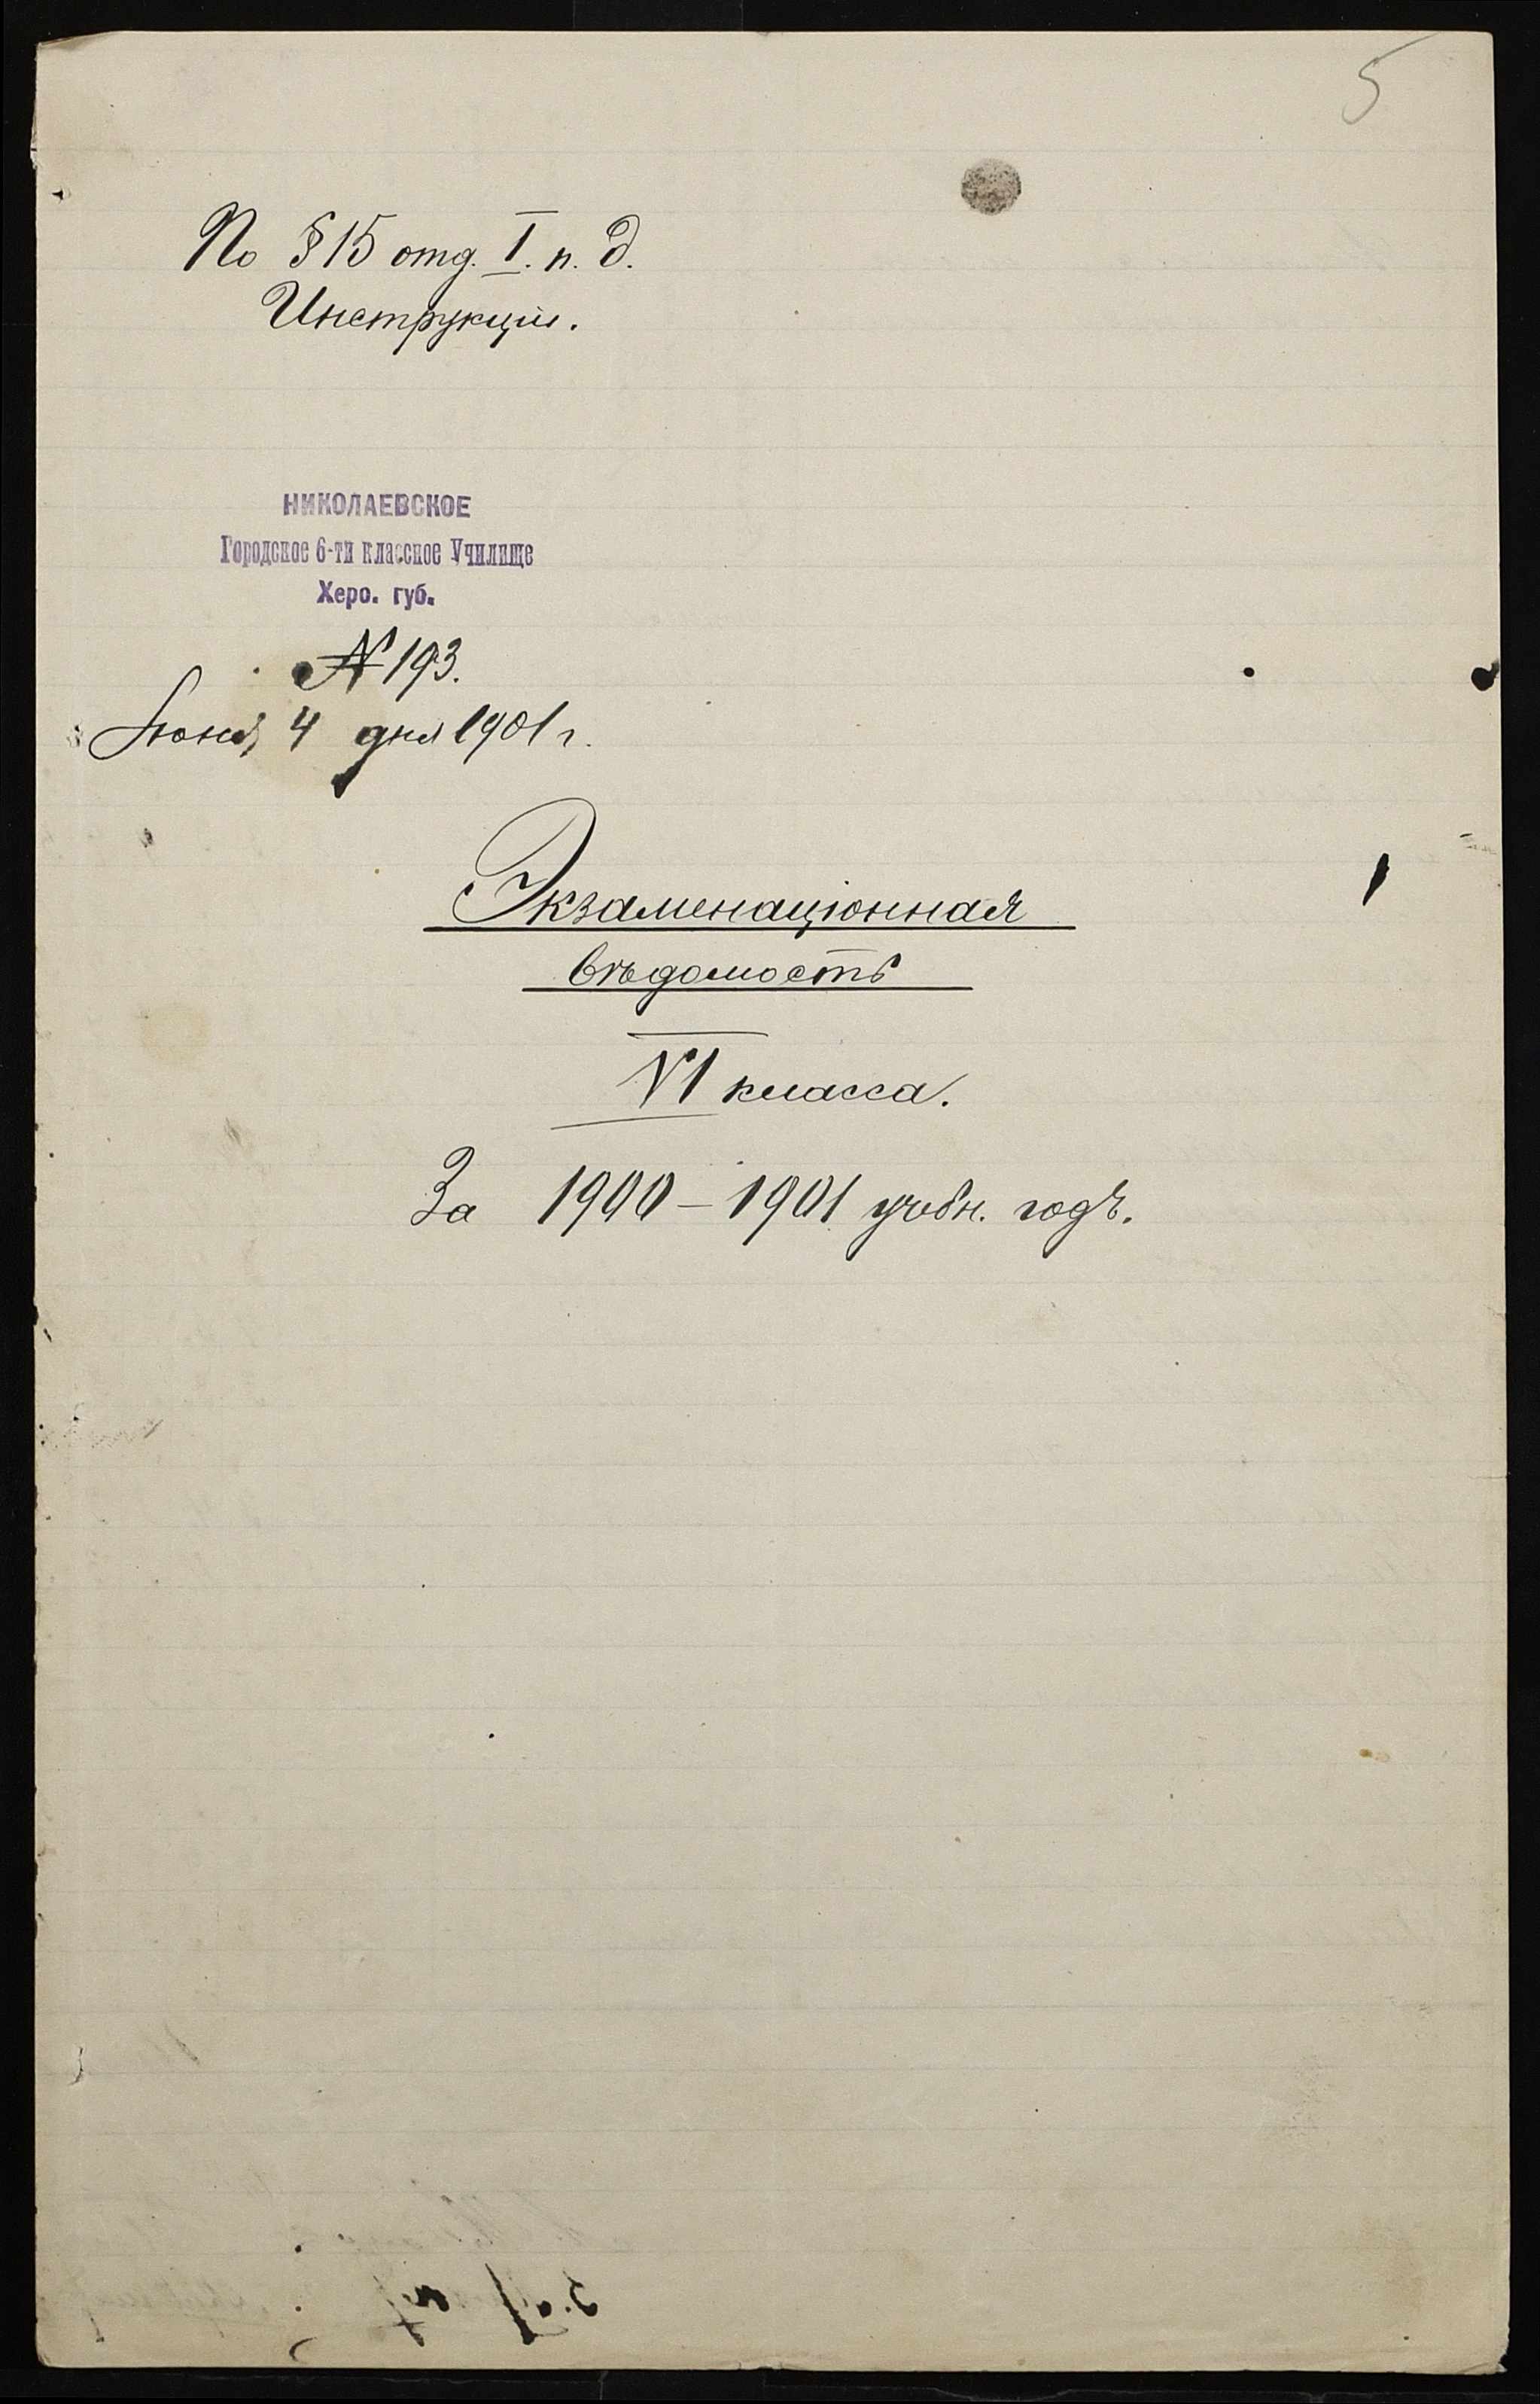 5
По § 15 отд. I. п. д.
Инструкціи.
НИКОЛАЕВСКОЕ
Городское 6-ти классное Училище
Херс. губ.
№ 193.
Іюня 4 дня 1901 г.
Экзаменаціонная
вѣдомость
VI класса.
За 1900 – 1901 учебн. годъ.